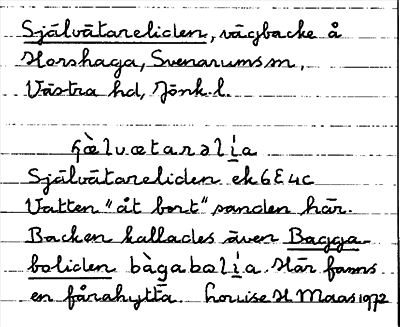 Självätareliden, vägbacke å
Horshaga, Svenarums sn,
Västra hd, Jönk. l.
ɧæ̀lvætarəlía
Självätareliden ek 6E4c
Vatten "åt bort" sanden här.
Backen kallades även Bagga-
boliden bàgabolía. Här fanns
en fårahytta. Louise H Maas 1972